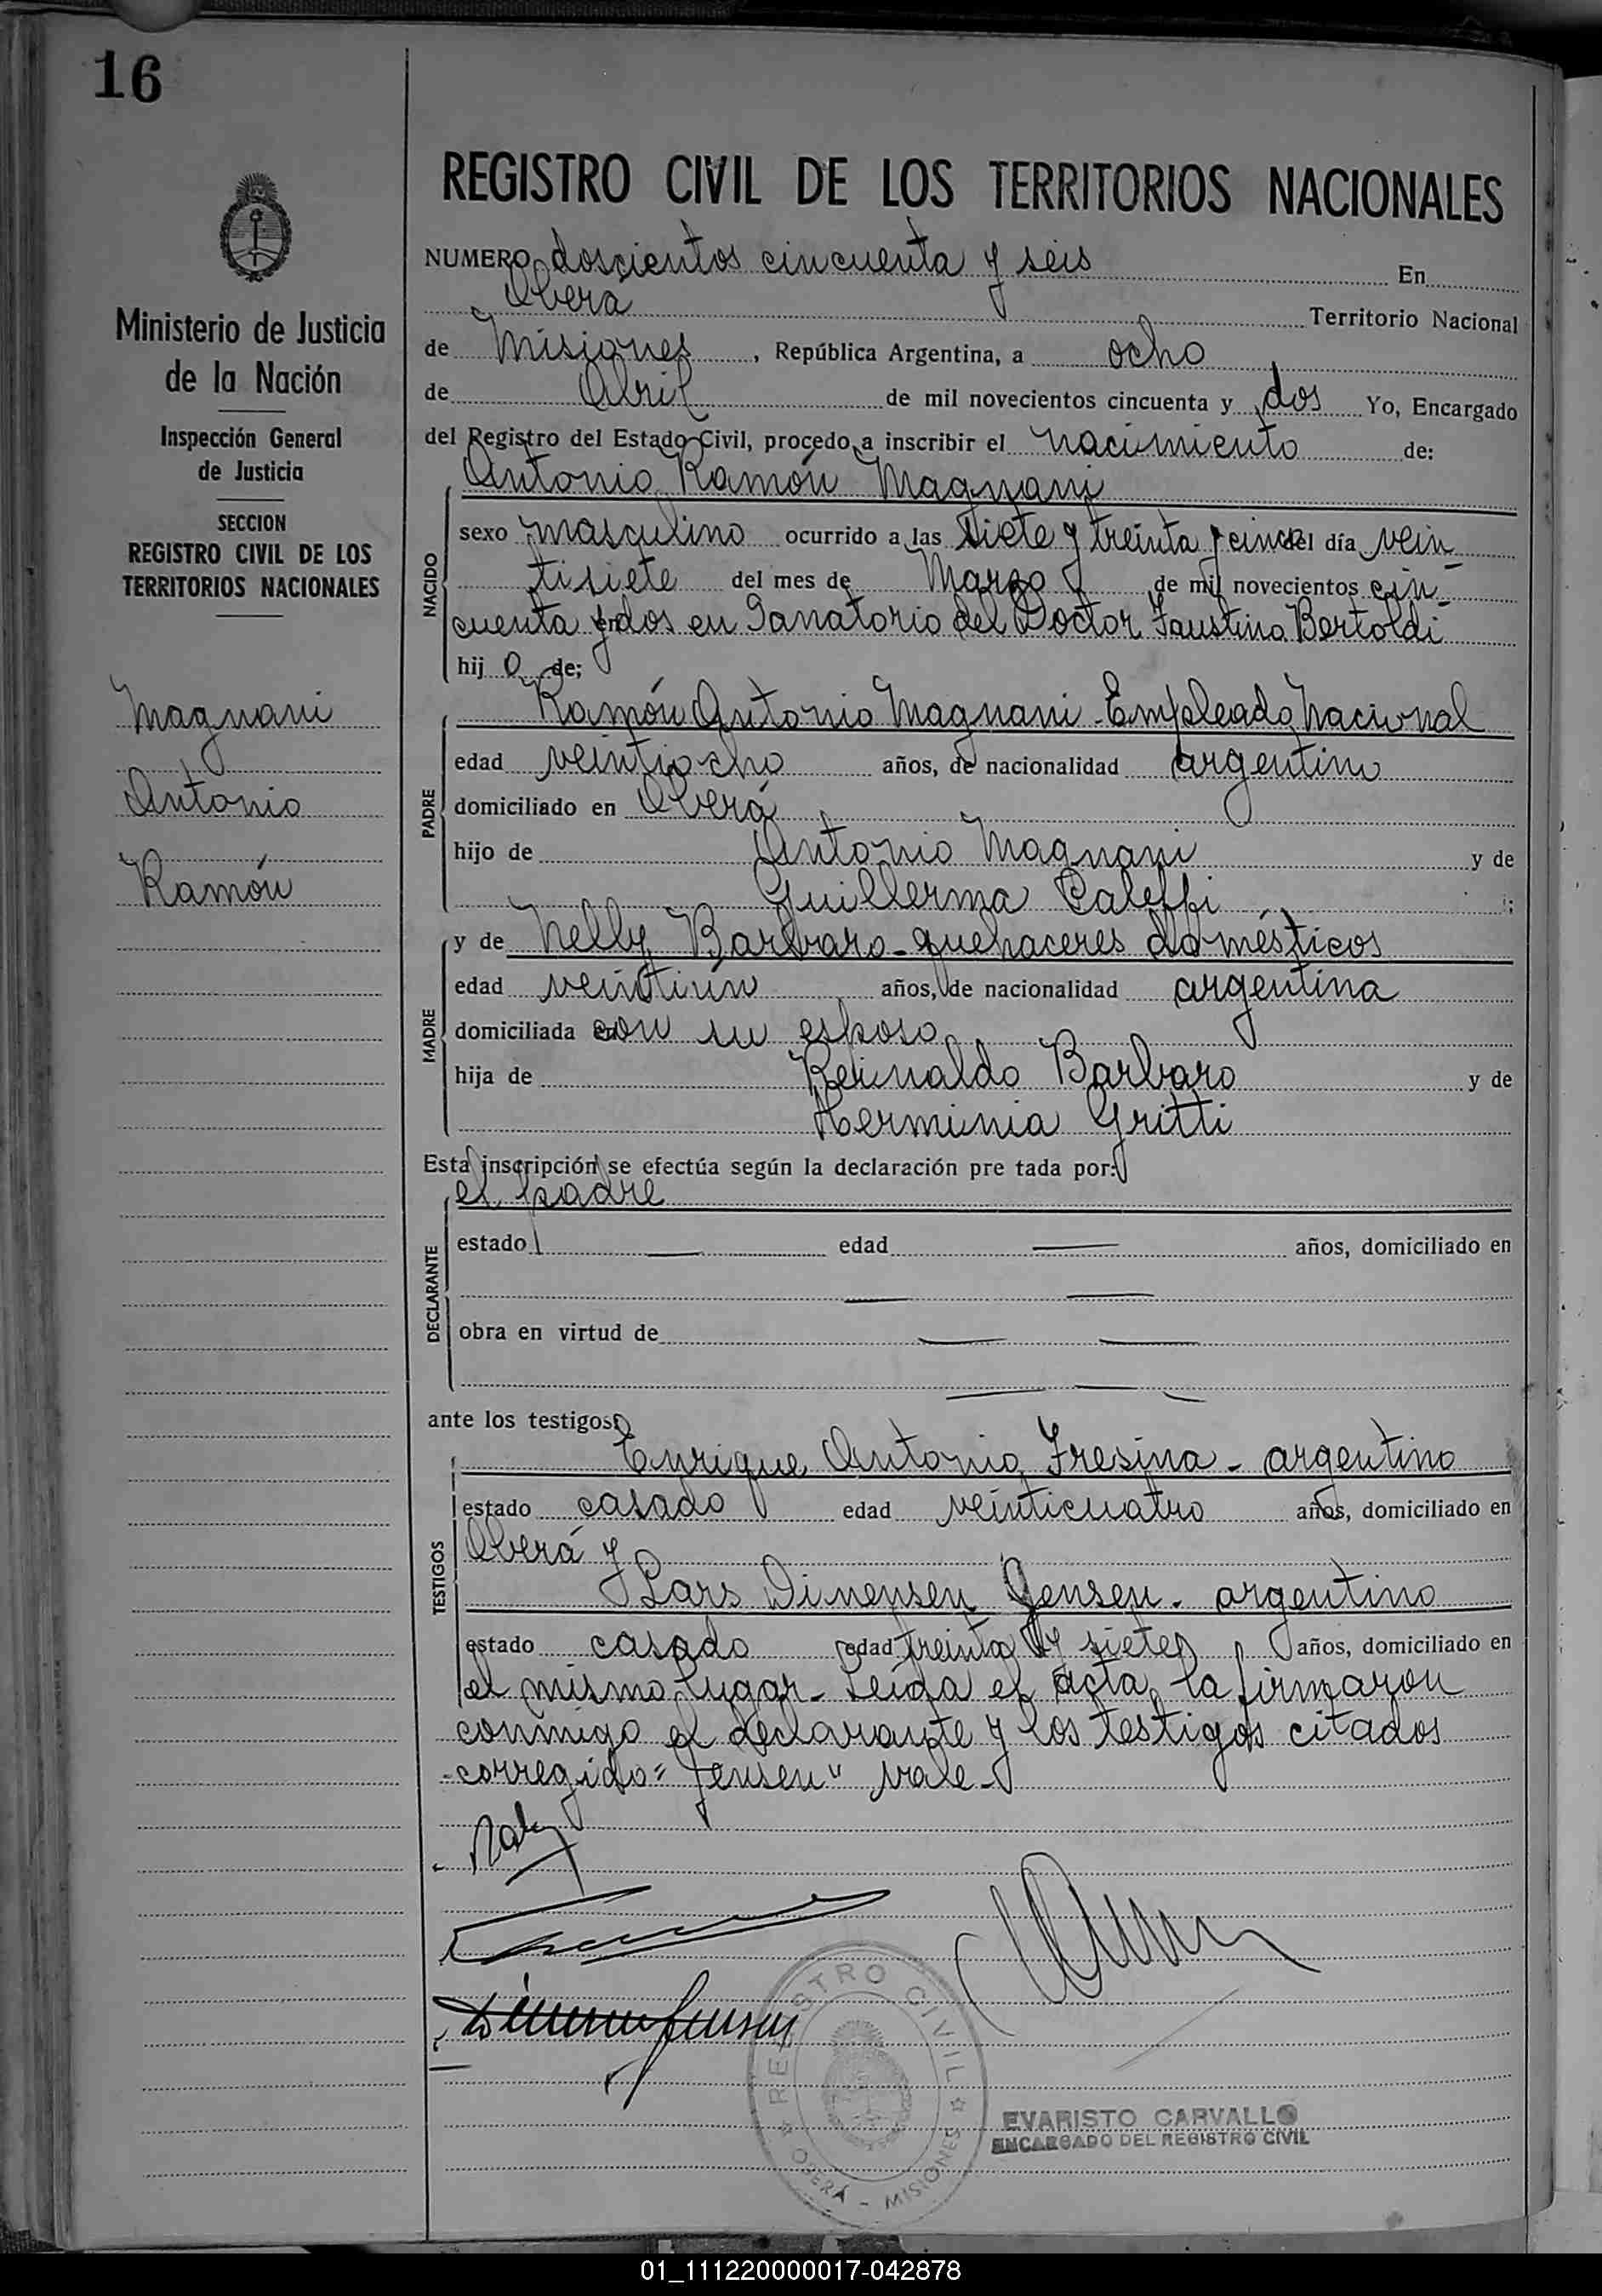 16
Ministerio de Justicia
de la Nación
Inspección General
de Justicia
SECCION
REGISTRO CIVIL DE LOS
TERRITORIOS NACIONALES
Magnani
Antonio
Ramón
REGISTRO CIVIL DE LOS TERRITORIOS NACIONALES
NUMERO doscientos cincuenta y seis En
Oberá Territorio Nacional
de Misiones, República Argentina, a ocho
de Abril de mil novecientos cincuenta y dos Yo, Encargado
del Registro del Estado Civil, procedo a inscribir el nacimiento de:
Antonio Ramón Magnani
NACIDO
sexo masculino ocurrido a las siete y treinta y cinco del día vein-
tisiete del mes de Marzo de mil novecientos cin-
cuenta y dos en Sanatorio del Doctor Faustino Bertoldi
hijo de;
PADRE
Ramón Antonio Magnani - Empleado Nacional
edad veintiocho años, de nacionalidad argentino
domiciliado en Oberá
hijo de Antonio Magnani y de
Guillerma Caleffi ;
MADRE
y de Nelly Barbaro - quehaceres domésticos
edad veintiún años, de nacionalidad argentina
domiciliada con su esposo
hija de Reinaldo Barbaro y de
Herminia Gritti
Esta inscripción se efectúa según la declaración pre tada por:
el padre
DECLARANTE
estado — edad — años, domiciliado en
— —
obra en virtud de — —
— — —
ante los testigos:
TESTIGOS
Enrique Antonio Fresina - argentino
estado casado edad veinticuatro años, domiciliado en
Oberá y
Lars Dinensen Jensen - argentino
estado casado edad treinta y siete años, domiciliado en
el mismo lugar - Leída el acta, la firmaron
conmigo el declarante y los testigos citados
- corregido = "Jensen" vale -
REGISTRO CIVIL
OBERÁ - MISIONES
EVARISTO CARVALLO
ENCARGADO DEL REGISTRO CIVIL
01_111220000017-042878